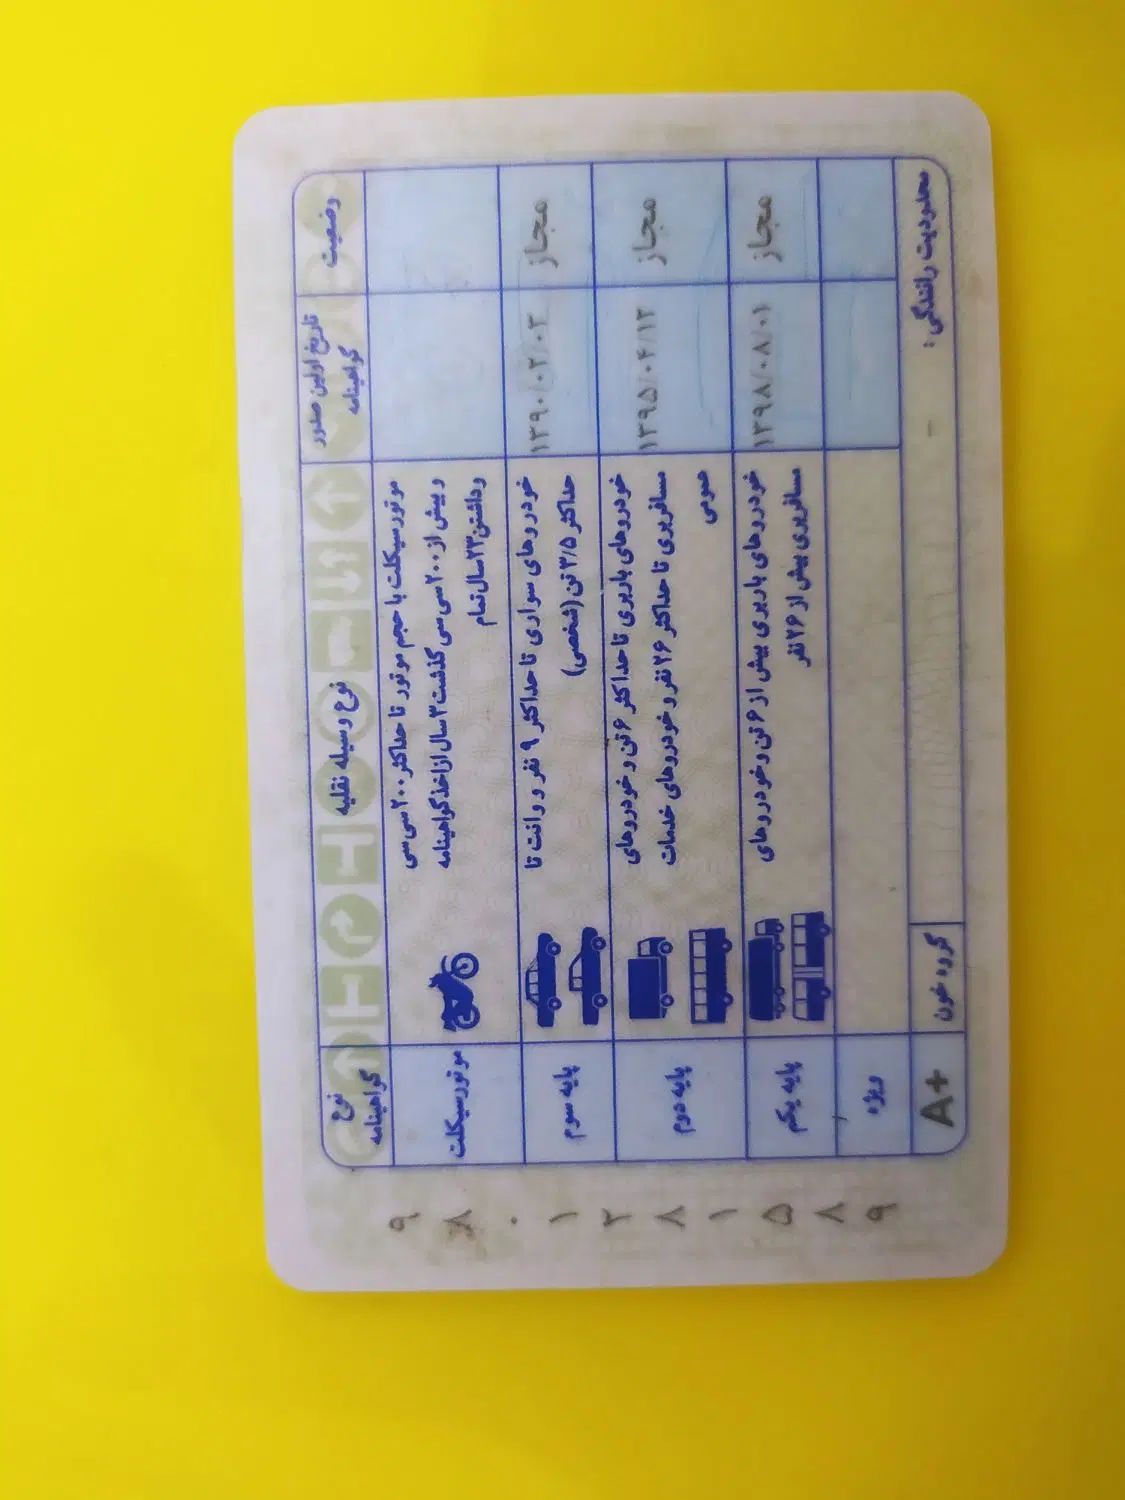 وضعیت
تاریخ اولین صدور
گواهینامه
نوع وسیله نقلیه
نوع
گواهینامه
موتورسیکلت با حجم موتور تا حداکثر ۲۰۰ سی سی
و بیش از ۲۰۰ سی سی گذشت ۳ سال از اخذ گواهینامه
و داشتن ۲۳ سال تمام
موتورسیکلت
مجاز
۱۳۹۰/۰۲/۰۳
خودروهای سواری تا حداکثر ۹ نفر و وانت تا
حداکثر ۳/۵ تن (شخصی)
پایه سوم
مجاز
۱۳۹۵/۰۴/۱۳
خودروهای باربری تا حداکثر ۶ تن و خودروهای
مسافربری تا حداکثر ۲۶ نفر و خودروهای خدمات
عمومی
پایه دوم
مجاز
۱۳۹۸/۰۸/۰۱
خودروهای باربری بیش از ۶ تن و خودروهای
مسافربری بیش از ۲۶ نفر
پایه یکم
ویژه
محدودیت رانندگی :
-
گروه خون
A+
۹
۸
۰
۱
۲
۸
۱
۵
۸
۹